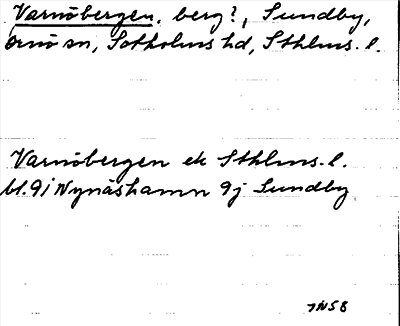 Varnöbergen, berg?, Sundby,
Ornö sn, Sotholms hd, Sthlms. l.
Varnöbergen ek Sthlms. l.
bl. 9i Nynäshamn 9j Sundby